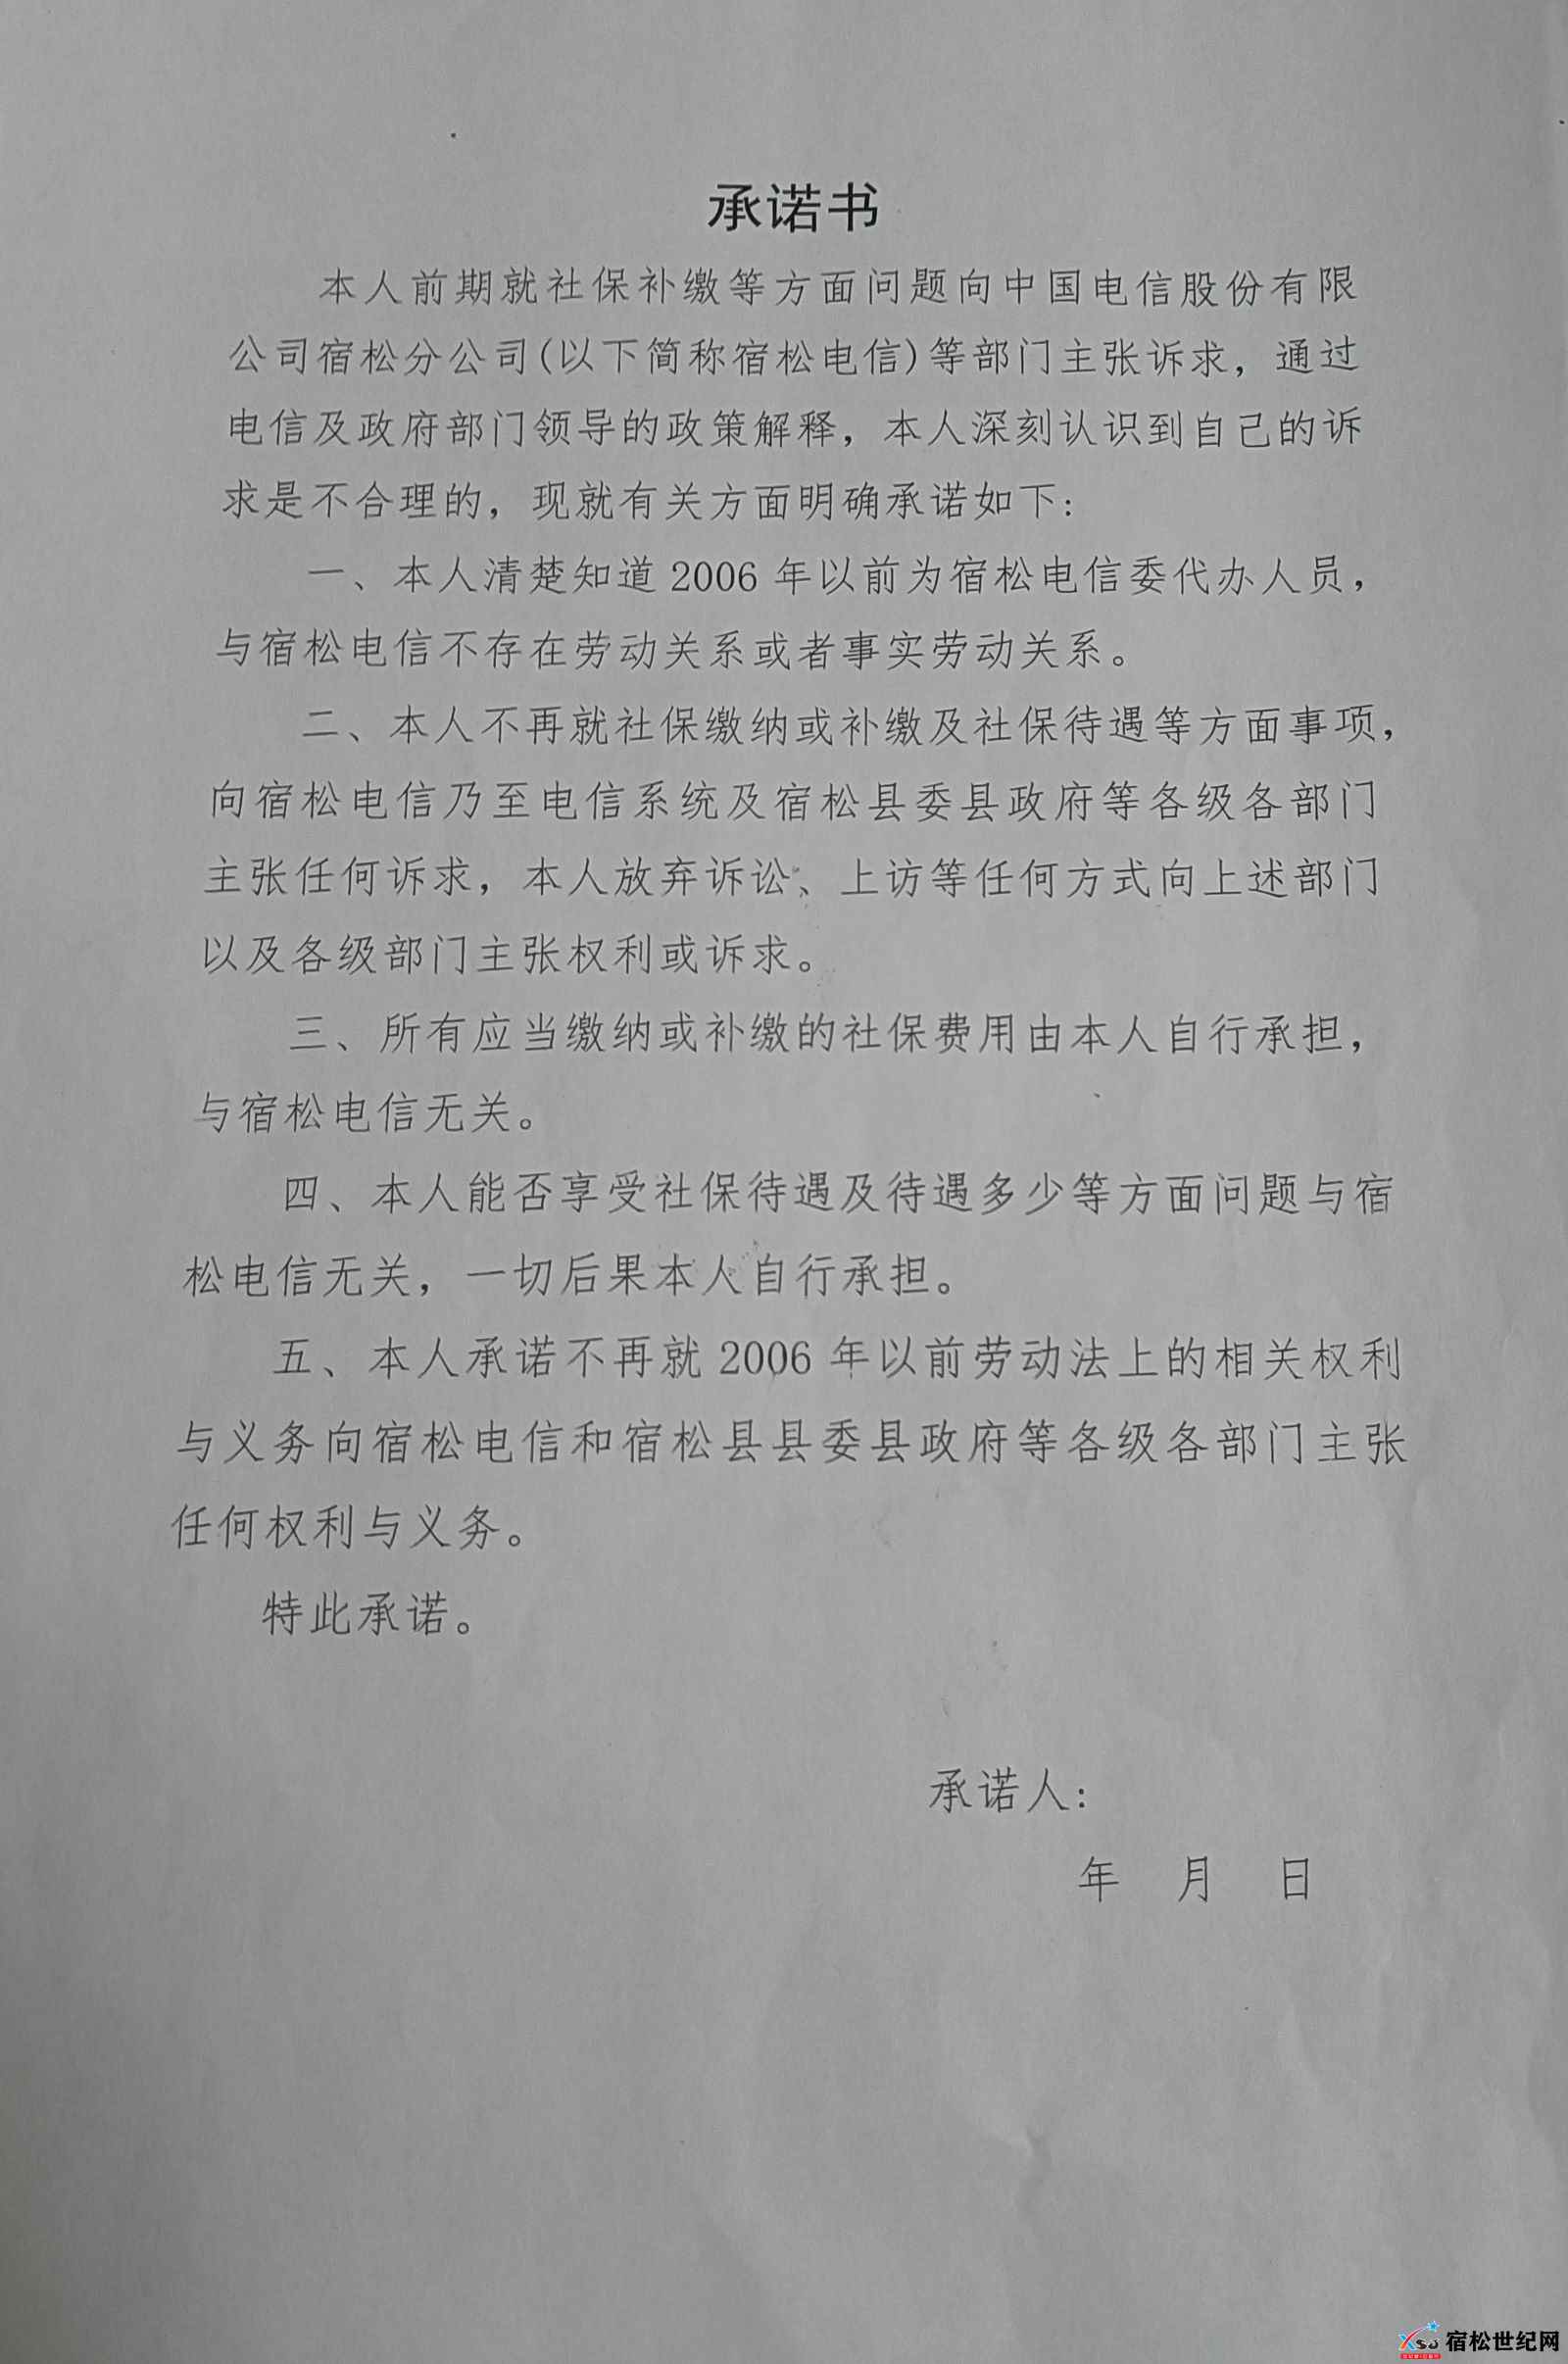 承诺书
本人前期就社保补缴等方面问题向中国电信股份有限
公司宿松分公司(以下简称宿松电信)等部门主张诉求，通过
电信及政府部门领导的政策解释，本人深刻认识到自己的诉
求是不合理的，现就有关方面明确承诺如下：
一、本人清楚知道 2006 年以前为宿松电信委代办人员，
与宿松电信不存在劳动关系或者事实劳动关系。
二、本人不再就社保缴纳或补缴及社保待遇等方面事项，
向宿松电信乃至电信系统及宿松县委县政府等各级各部门
主张任何诉求，本人放弃诉讼、上访等任何方式向上述部门
以及各级部门主张权利或诉求。
三、所有应当缴纳或补缴的社保费用由本人自行承担，
与宿松电信无关。
四、本人能否享受社保待遇及待遇多少等方面问题与宿
松电信无关，一切后果本人自行承担。
五、本人承诺不再就 2006 年以前劳动法上的相关权利
与义务向宿松电信和宿松县县委县政府等各级各部门主张
任何权利与义务。
特此承诺。
承诺人：
年 月 日
宿松世纪网